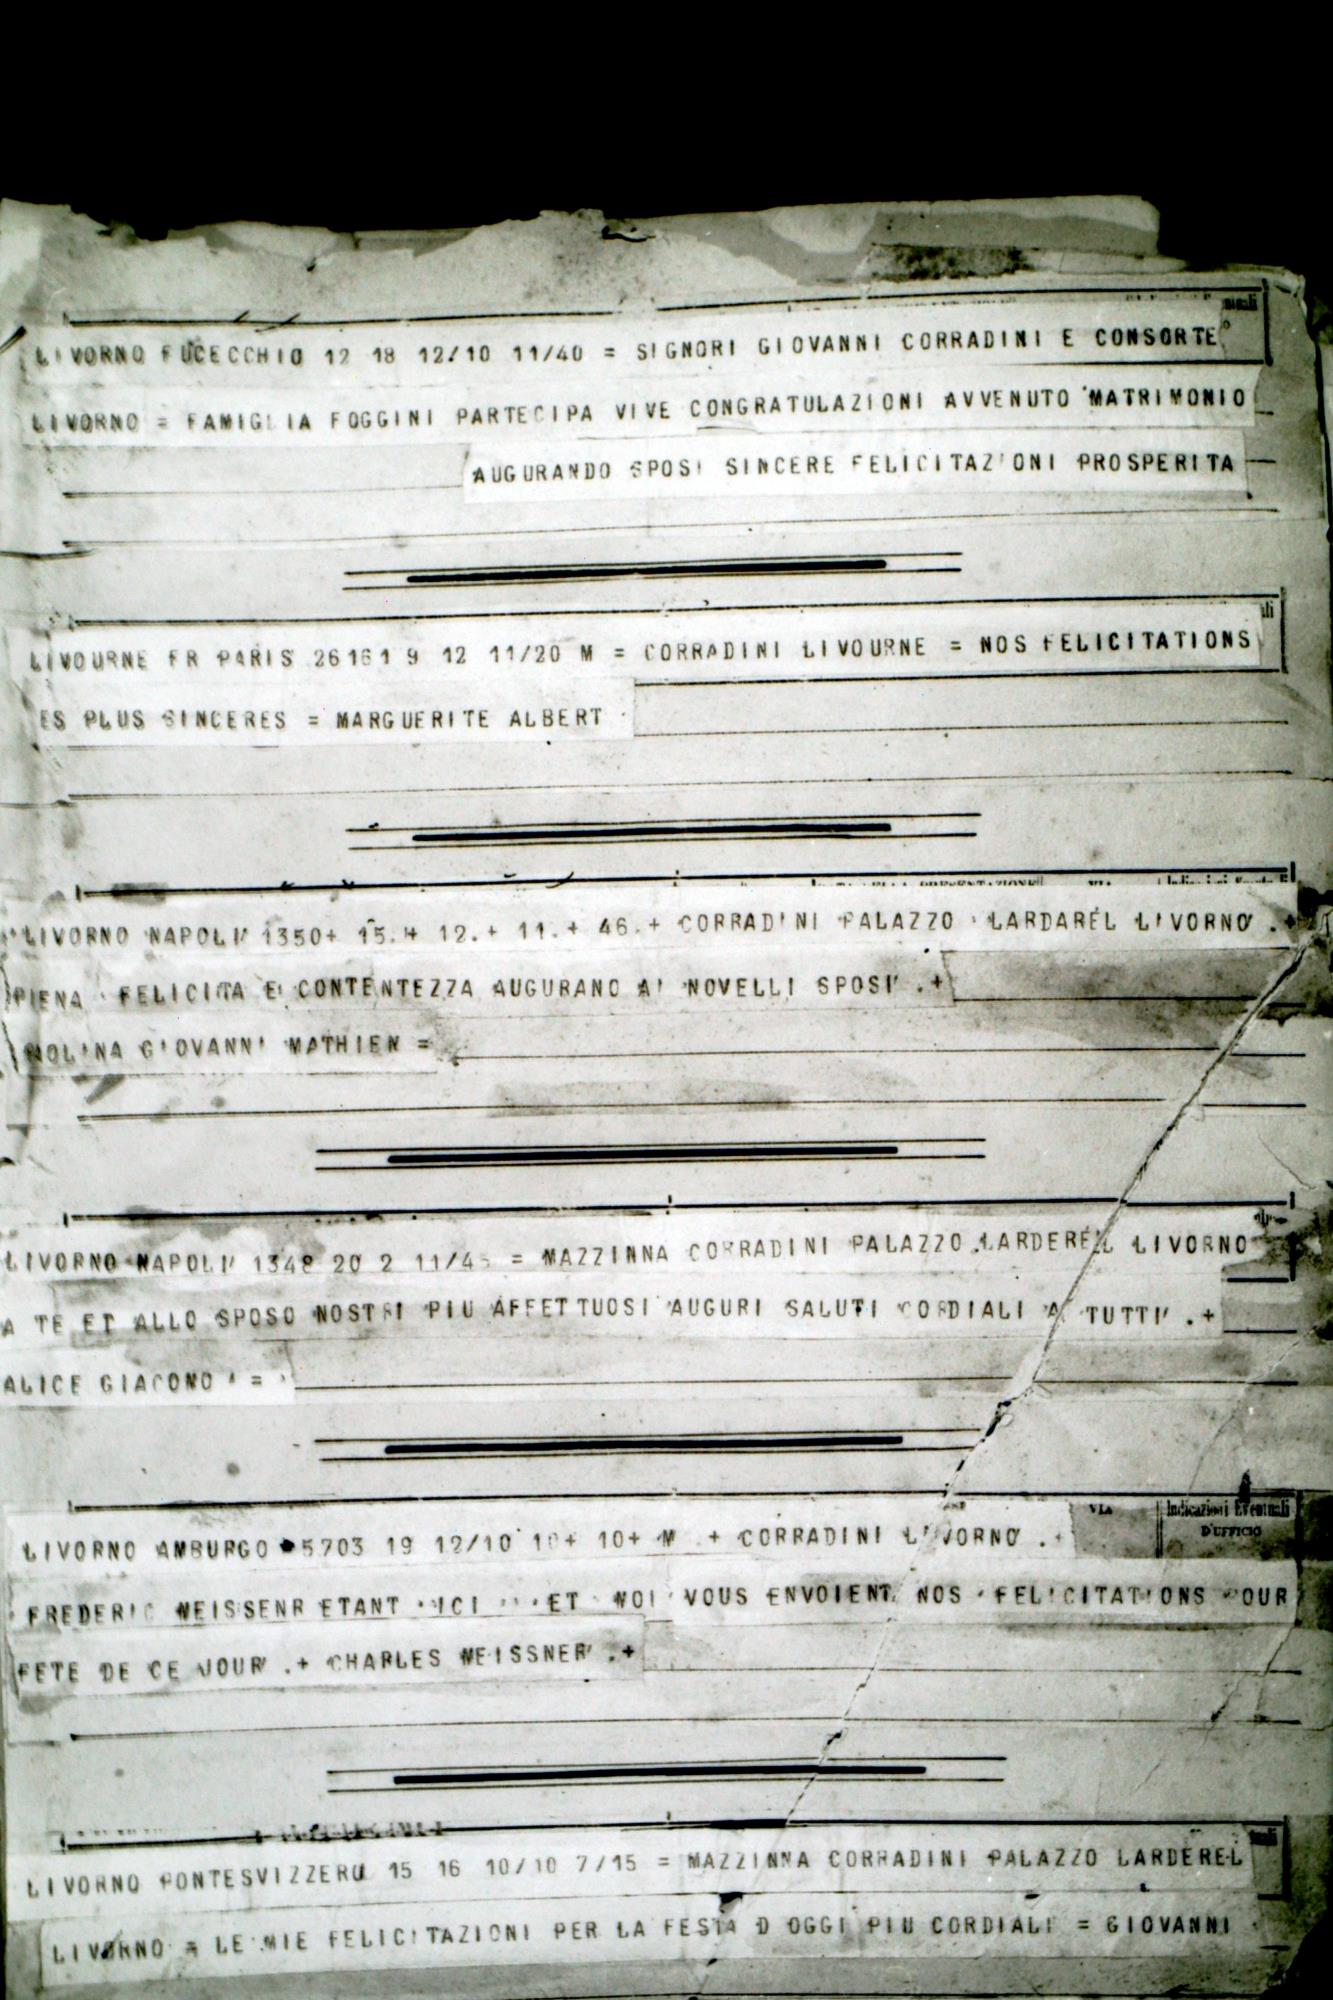 LIVORNO FUCECCHIO 12 18 12/10 11/40 = SIGNORI GIOVANNI CORRADINI E CONSORTE
LIVORNO = FAMIGLIA FOGGINI PARTECIPA VIVE CONGRATULAZIONI AVVENUTO MATRIMONIO
AUGURANDO SPOSI SINCERE FELICITAZIONI PROSPERITA
LIVOURNE FR PARIS 26161 9 12 11/20 M = CORRADINI LIVOURNE = NOS FELICITATIONS
ES PLUS SINCERES = MARGUERITE ALBERT
LIVORNO NAPOLI 1350+ 15.+ 12.+ 11.+ 46.+ CORRADINI PALAZZO LARDAREL LIVORNO .+
PIENA FELICITA E CONTENTEZZA AUGURANO AI NOVELLI SPOSI .+
GIOVANNI MATHIEN =
LIVORNO NAPOLI 1348 20 2 11/45 = MAZZINNA CORRADINI PALAZZO LARDEREL LIVORNO
A TE ET ALLO SPOSO NOSTRI PIU AFFETTUOSI AUGURI SALUTI CORDIALI A TUTTI .+
ALICE GIACOMO =
VIA
Indicazioni Eventuali
D'UFFICIO
LIVORNO AMBURGO 5703 19 12/10 10+ 10+ M .+ CORRADINI LIVORNO .+
FREDERIC WEISSENR ETANT ICI ET NOI VOUS ENVOIENT NOS FELICITATIONS POUR
FETE DE CE JOUR .+ CHARLES WEISSNER .+
LIVORNO PONTESVIZZERO 15 16 10/10 7/15 = MAZZINNA CORRADINI PALAZZO LARDEREL
LIVORNO = LE MIE FELICITAZIONI PER LA FESTA D OGGI PIU CORDIALI = GIOVANNI